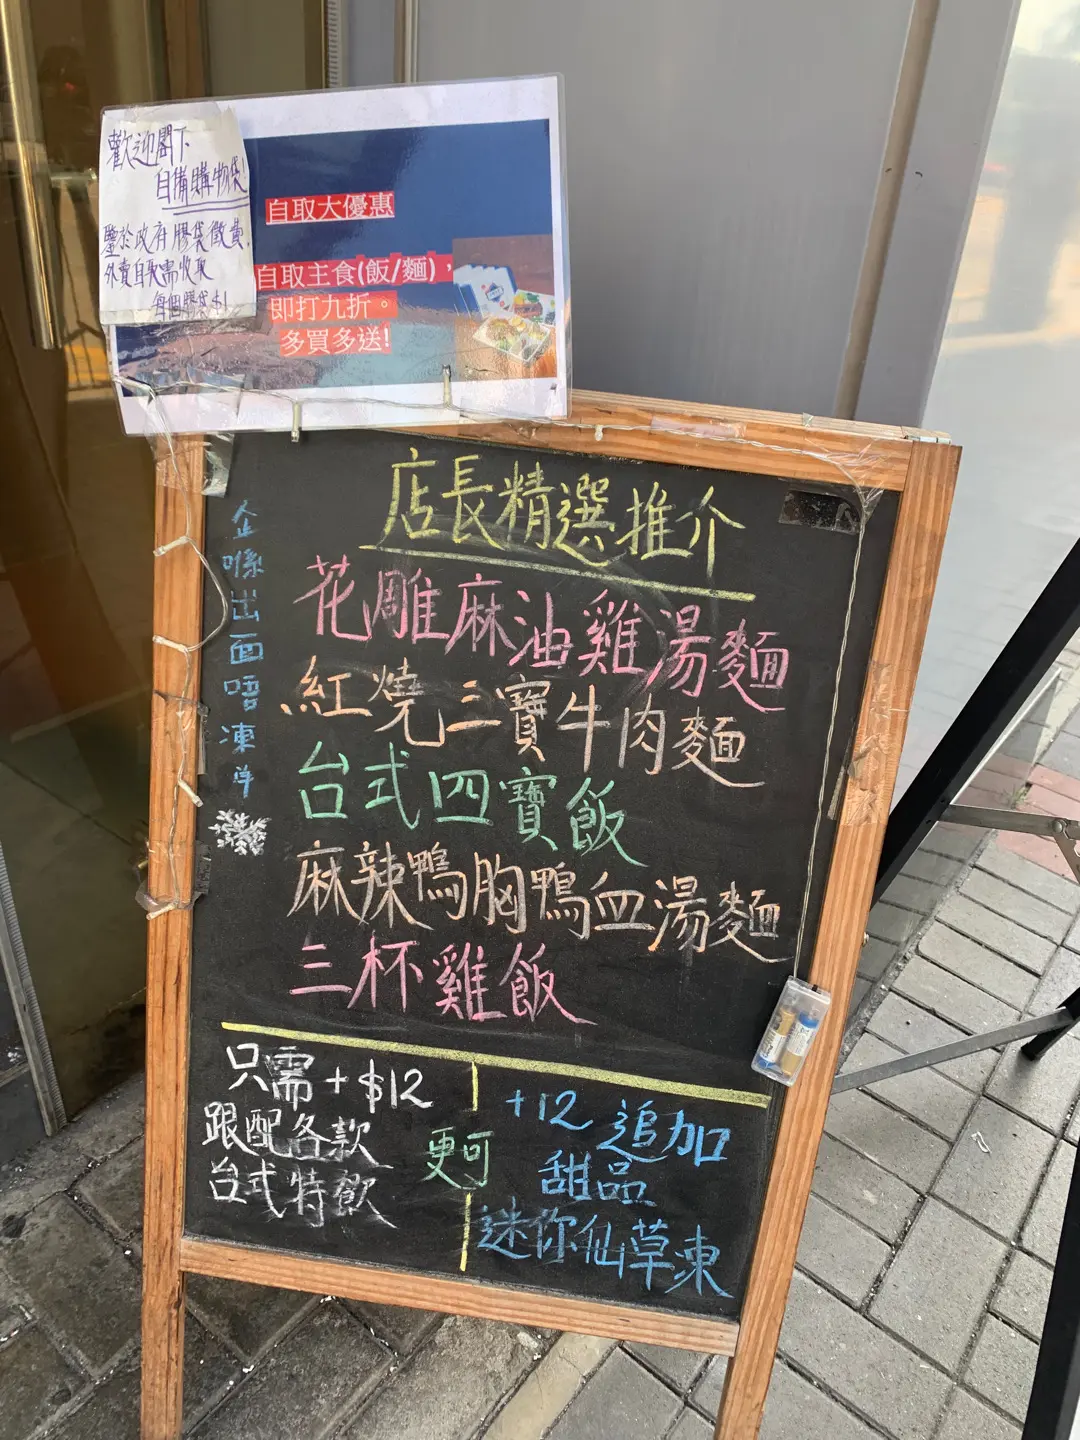 歡迎閣下
自備購物袋!
鑒於政府膠袋徵費,
外賣自取需收取
每個膠袋$1!
自取大優惠
自取主食(飯/麵),
即打九折。
多買多送!
店長精選推介
花雕麻油雞湯麵
紅燒三寶牛肉麵
台式四寶飯
麻辣鴨胸鴨血湯麵
三杯雞飯
企喺出面唔凍
只需+$12
跟配各款
台式特飲
更可
+12 追加
甜品
迷你仙草凍